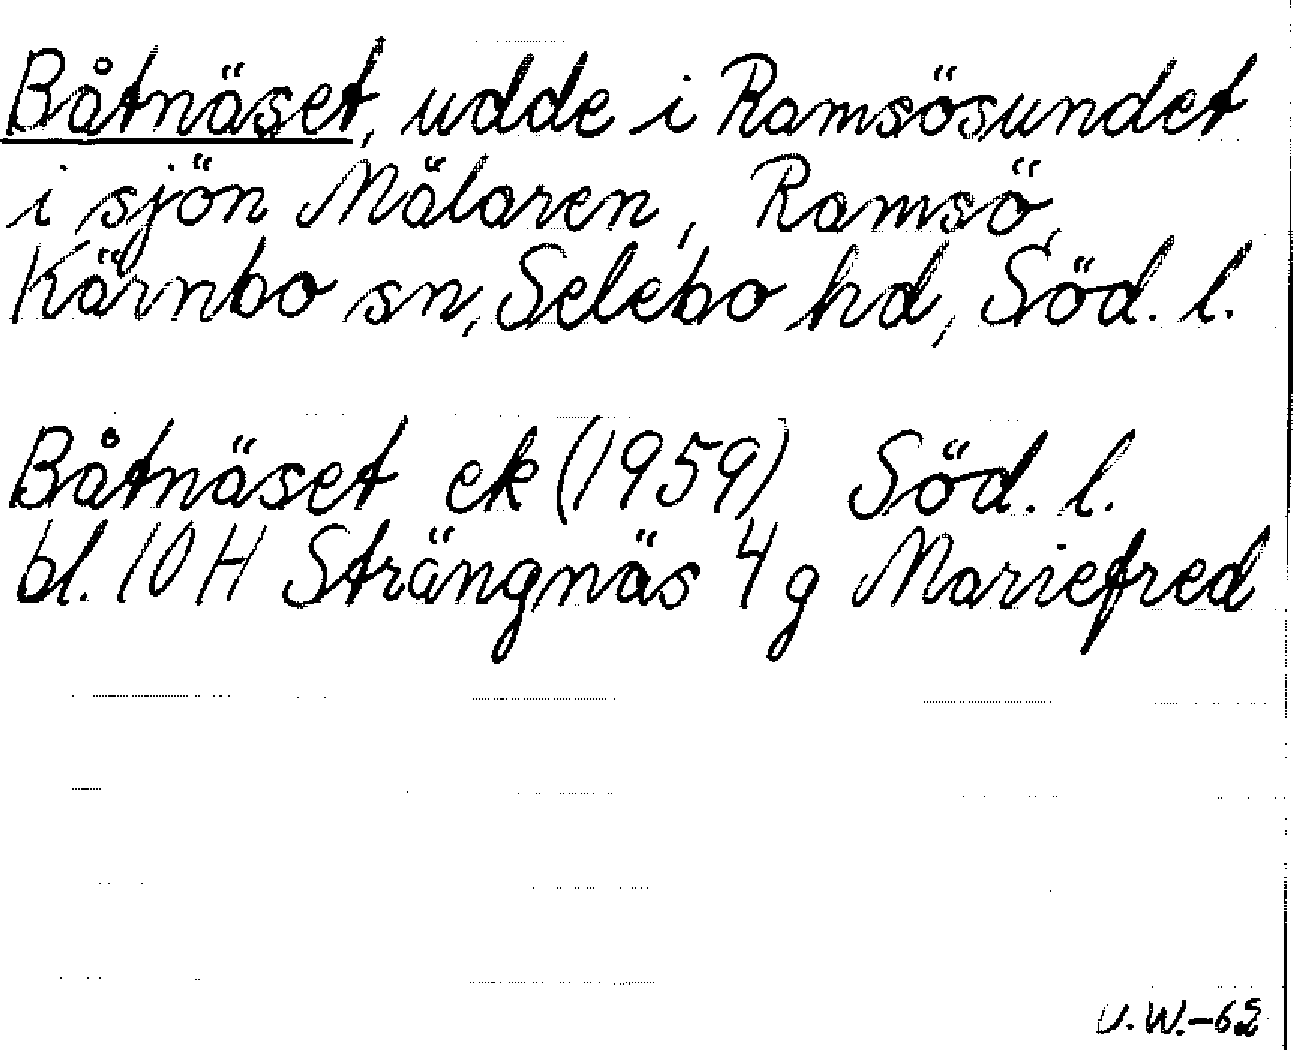 Båtnäset, udde i Ramsösundet
i sjön Mälaren, Ramsö,
Kärnbo sn, Selebo hd, Söd. l.
Båtnäset ek (1959) Söd. l.
bl. 10 H Strängnäs 4 g Mariefred
U.W.-62